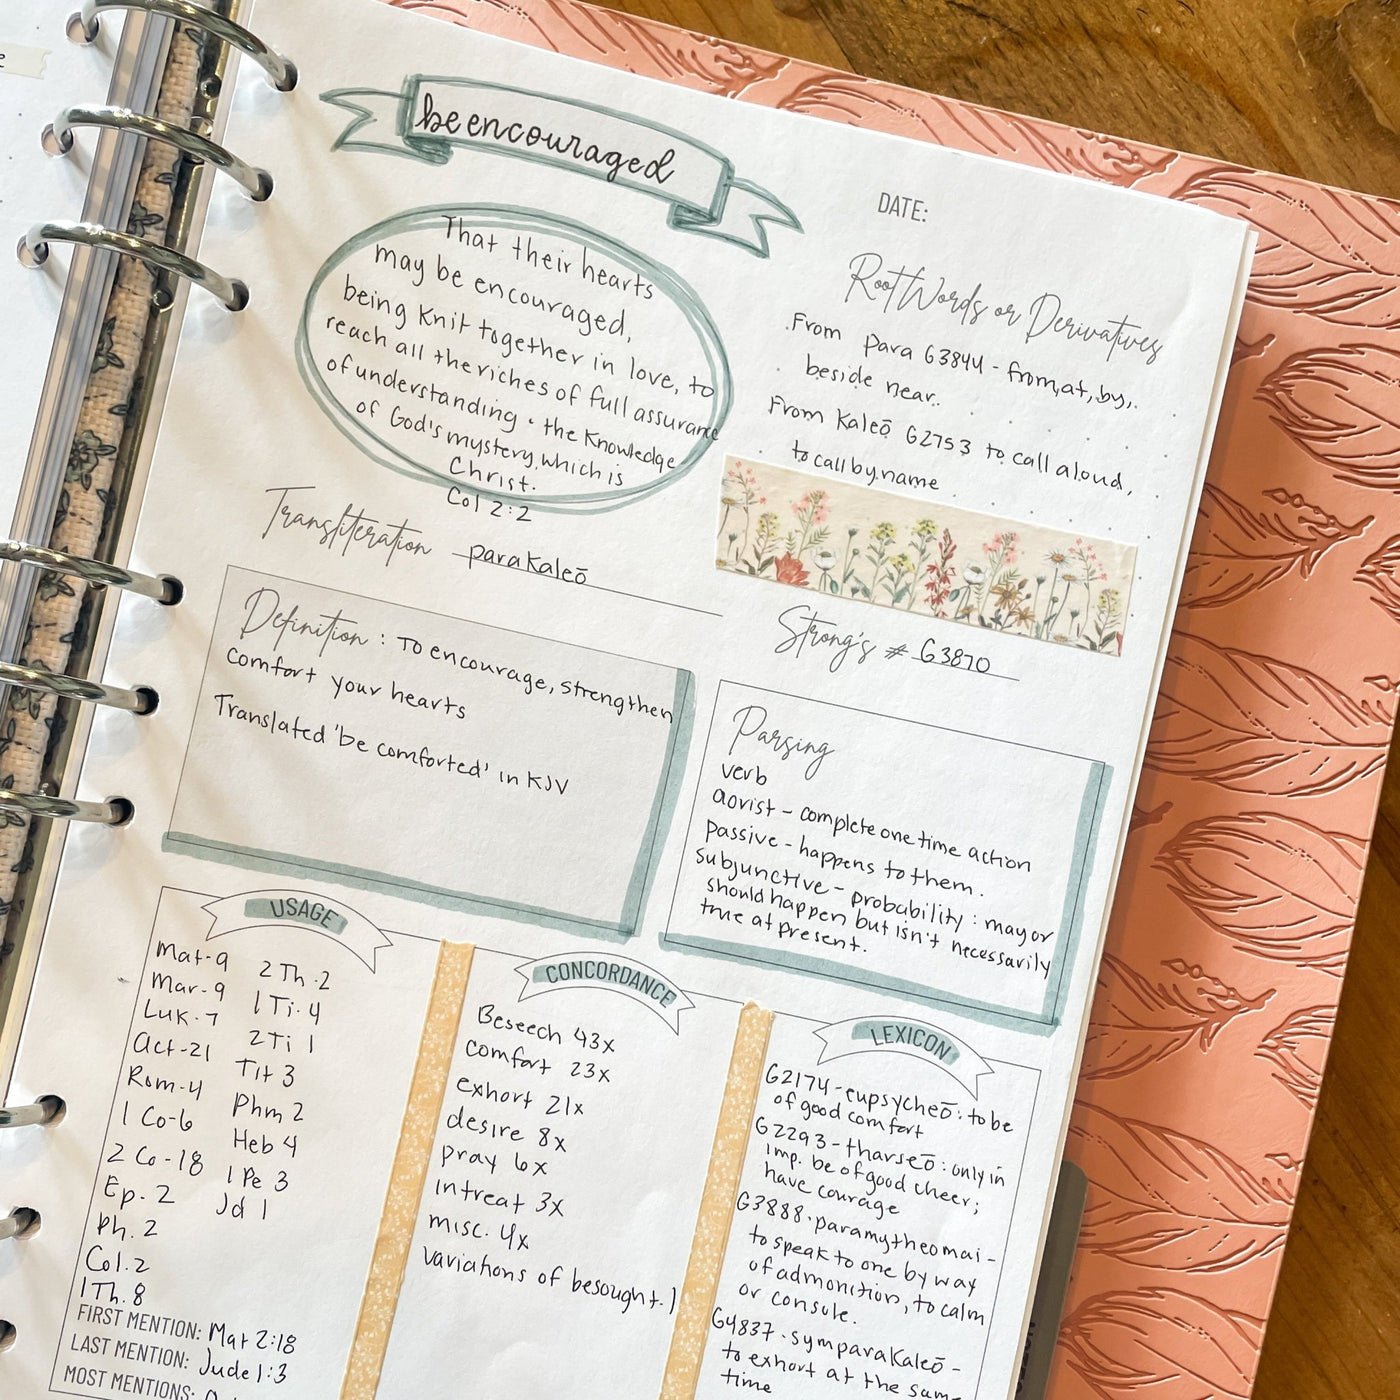 be encouraged
DATE:
That their hearts
may be encouraged,
being knit together in love, to
reach all the riches of full assurance
of understanding · the knowledge
of God's mystery, which is
Christ.
Col 2:2
Root Words or Derivatives
From para G3844 - from, at, by,
beside near.
From Kaleō G2753 to call aloud,
to call by name
Transliteration paraKaleō
Strong's # G3870
Definition : To encourage, strengthen
comfort your hearts
Translated 'be comforted' in KJV
Parsing
verb
aorist - complete one time action
passive - happens to them.
subjunctive - probability : may or
should happen but isn't necessarily
true at present.
USAGE
Mat-9
Mar-9
Luk-7
Act-21
Rom-4
1 Co-6
2 Co-18
Ep. 2
Ph. 2
Col. 2
1Th. 8
2 Th. 2
1 Ti. 4
2 Ti 1
Tit 3
Phm 2
Heb 4
1 Pe 3
Jd 1
FIRST MENTION: Mat 2:18
LAST MENTION: Jude 1:3
MOST MENTIONS:
CONCORDANCE
Beseech 43x
comfort 23x
exhort 21x
desire 8x
pray 6x
intreat 3x
misc. 4x
variations of besought.)
LEXICON
G2174 - eupsycheō : to be
of good comfort
G2293 - tharseō : only in
imp. be of good cheer;
have courage
G3888 · paramytheomai -
to speak to one by way
of admonition, to calm
or console.
G4837 · symparaKaleō -
to exhort at the sam-
time